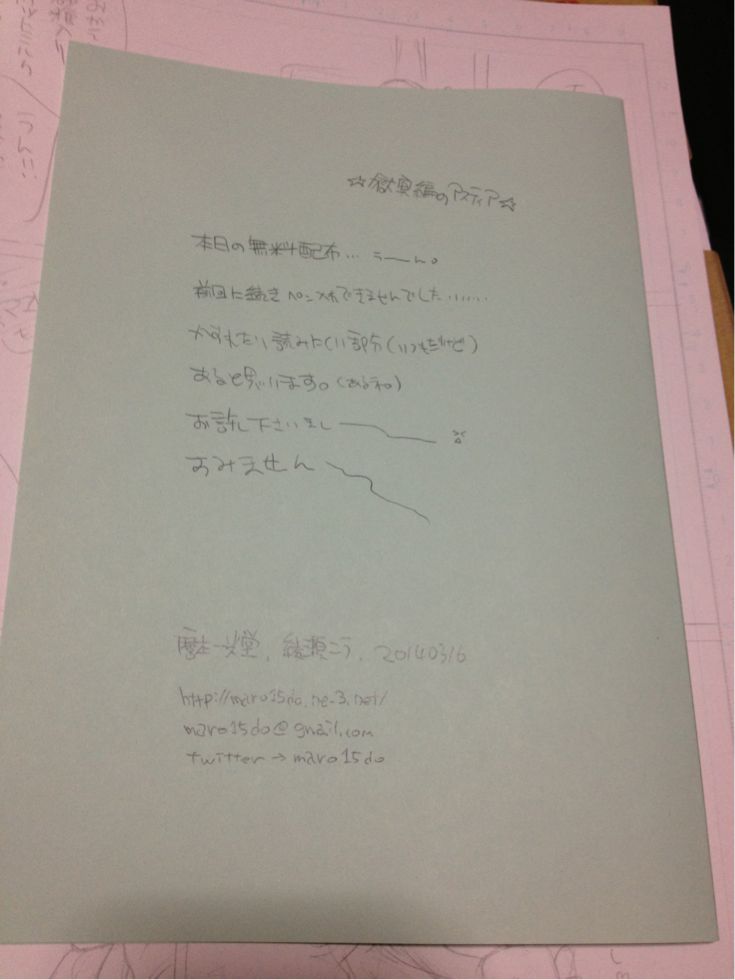 ☆獄寅編のアスティア☆
本日の無料配布… うーん。
前回に続きペン入れできませんでした……
かすれたり読みにくい部分(いつもだけど)
あると思います。(あるネ)
お許し下さいまし
すみません
麿一堂. 綾瀬こう. 20140316
http://maro15do.ne-3.net/
maro15do@gmail.com
twitter→maro15do